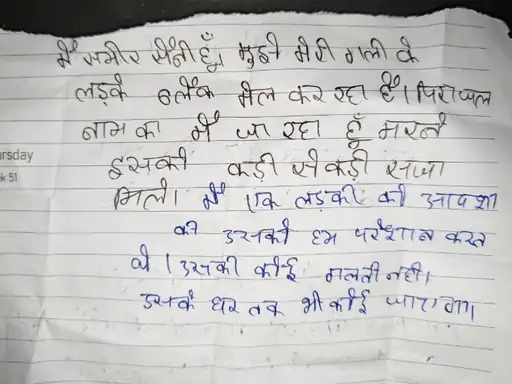 मैं समीर सैनी हूँ। मुझे मेरी गली के
लड़के ब्लैक मेल कर रहा है।
नाम का मैं जा रहा हूँ मरने
इसको कड़ी से कड़ी साजा
मिले। मैं एक लड़की को
की उसको हम परेशान करत
थे। उसकी कोई गलती नही।
उसके घर तक भी कोई
rsday
k 51